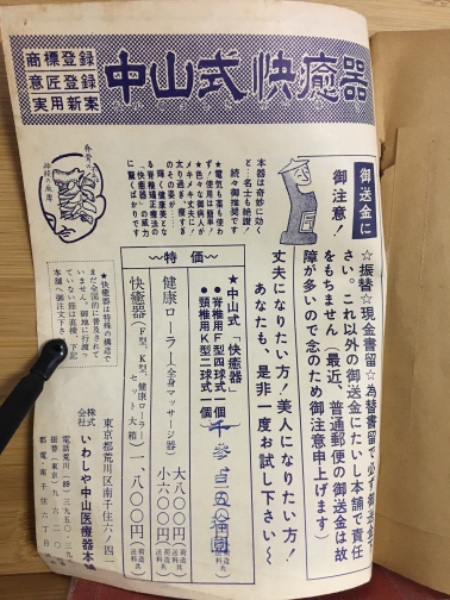 商標登録
意匠登録
実用新案
中山式快癒器
御送金に
御注意！
☆振替☆現金書留☆為替書留で必ず御送金下
さい。これ以外の御送金にたいし本舗で責任
をもちません（最近、普通郵便の御送金は故
障が多いので念のため御注意申上げます）
丈夫になりたい方！美人になりたい方！
あなたも、是非一度お試し下さい〜
本器は奇妙に効く
と…名士も絶讃！
続々御推奨です
★電気も薬も使わ
ず！使用は簡単！
★色々な御病人が
メキメキ丈夫に！
太り過ぎ、瘦すぎ
のその姿が……
輝く健康美とな
る脊椎矯正療法の
「快癒器」の威力
に驚くばかりです
特価
★中山式「快癒器」
●脊椎用F型四球式一個
●頸椎用K型二球式一個
健康ローラー（全身マッサージ器）
大八〇〇円（荷造送料共）
小六〇〇円（荷造送料共）
快癒器（F型、K型、健康ローラーセット大箱）
一、八〇〇円（荷造送料共）
★快癒器は特殊の構造で
まだ全国的に普及されて
いません。御地に行渡っ
ていない節は直接、下記
本舗へ御注文下さ
東京都荒川区南千住六ノ四一
株式会社 いわしや中山医療器本舗
電話荒川
振替（東京）九六二〇
都電・南千住六丁目